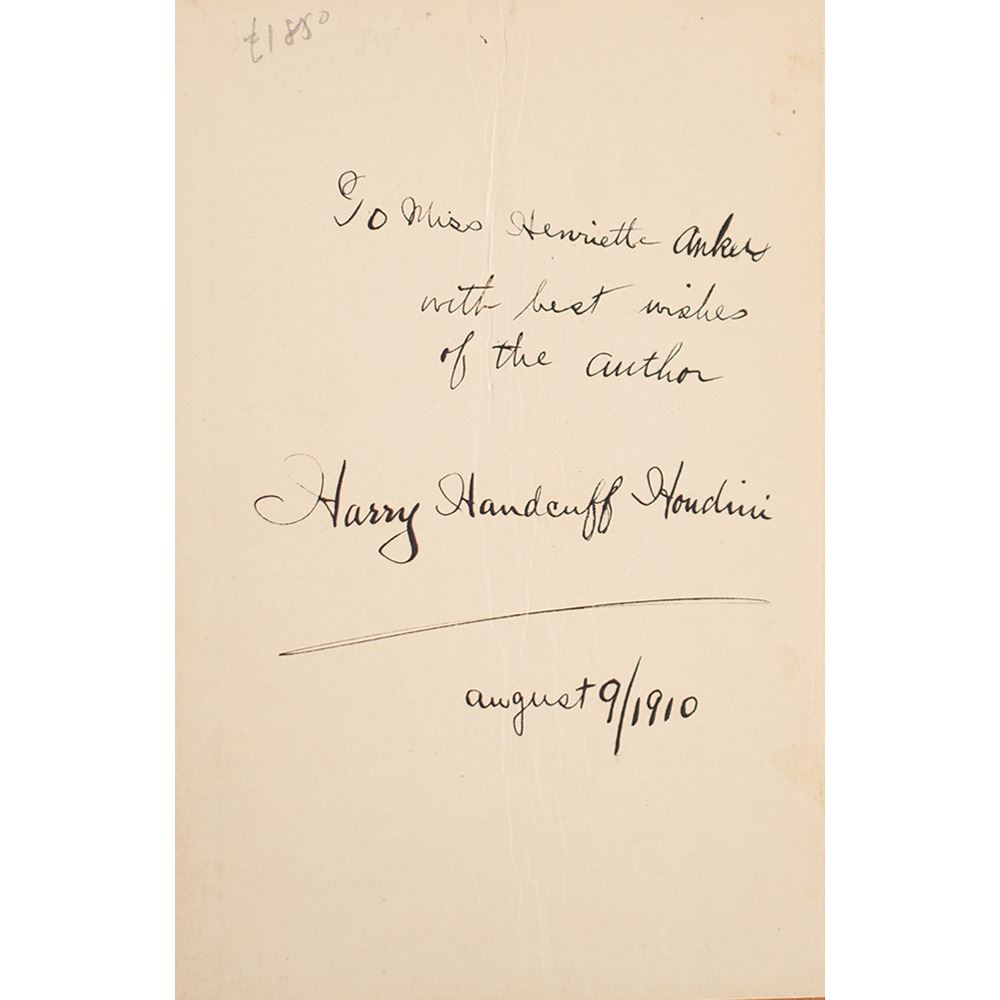 £1850
To Miss Henrietta Ankers
with best wishes
of the author
Harry Handcuff Houdini
august 9/1910